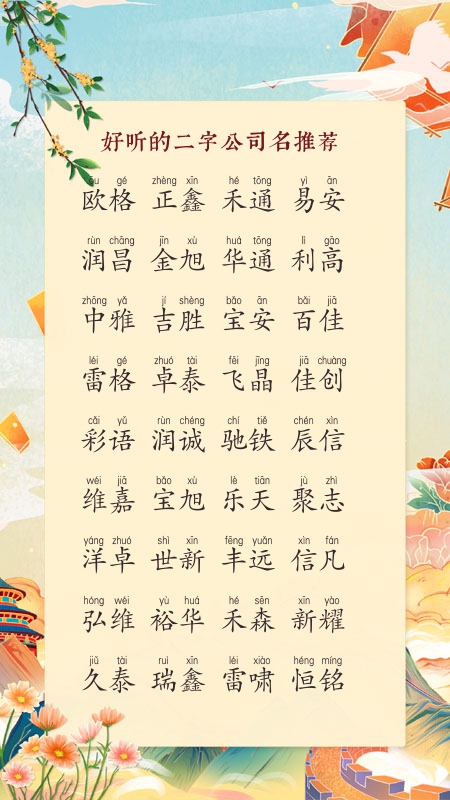 好听的二字公司名推荐
ōu gé zhèng xīn hé tōng yì ān
欧格 正鑫 禾通 易安
rùn chāng jīn xù huá tōng lì gāo
润昌 金旭 华通 利高
zhōng yǎ jí shèng bǎo ān bǎi jiā
中雅 吉胜 宝安 百佳
léi gé zhuó tài fēi jīng jiā chuàng
雷格 卓泰 飞晶 佳创
cǎi yǔ rùn chéng chí tiě chén xìn
彩语 润诚 驰铁 辰信
wéi jiā bǎo xù lè tiān jù zhì
维嘉 宝旭 乐天 聚志
yáng zhuó shì xīn fēng yuǎn xìn fán
洋卓 世新 丰远 信凡
hóng wéi yù huá hé sēn xīn yào
弘维 裕华 禾森 新耀
jiǔ tài ruì xīn léi xiào héng míng
久泰 瑞鑫 雷啸 恒铭